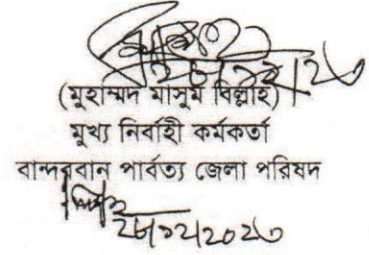 (মুহাম্মদ মাসুম বিল্লাহ)
মুখ্য নির্বাহী কর্মকর্তা
বান্দরবান পার্বত্য জেলা পরিষদ
২৮/১২/২০২৩